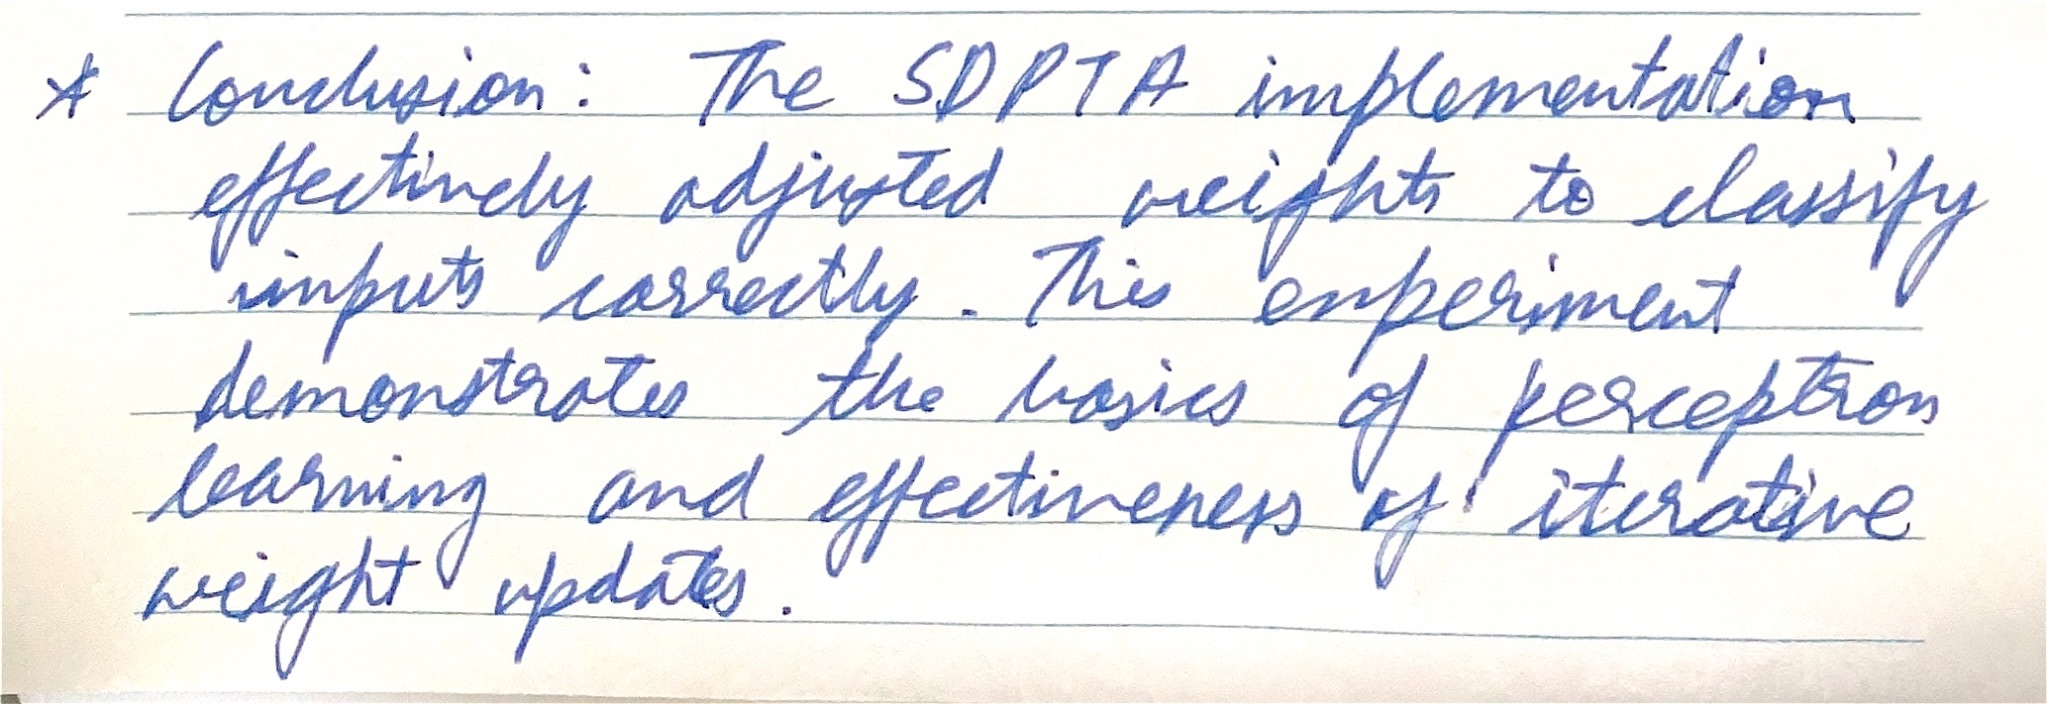 * Conclusion: The SDPTA implementation
effectively adjusted weights to classify
inputs correctly. This experiment
demonstrates the basics of perceptron
learning and effectiveness of iterative
weight updates.